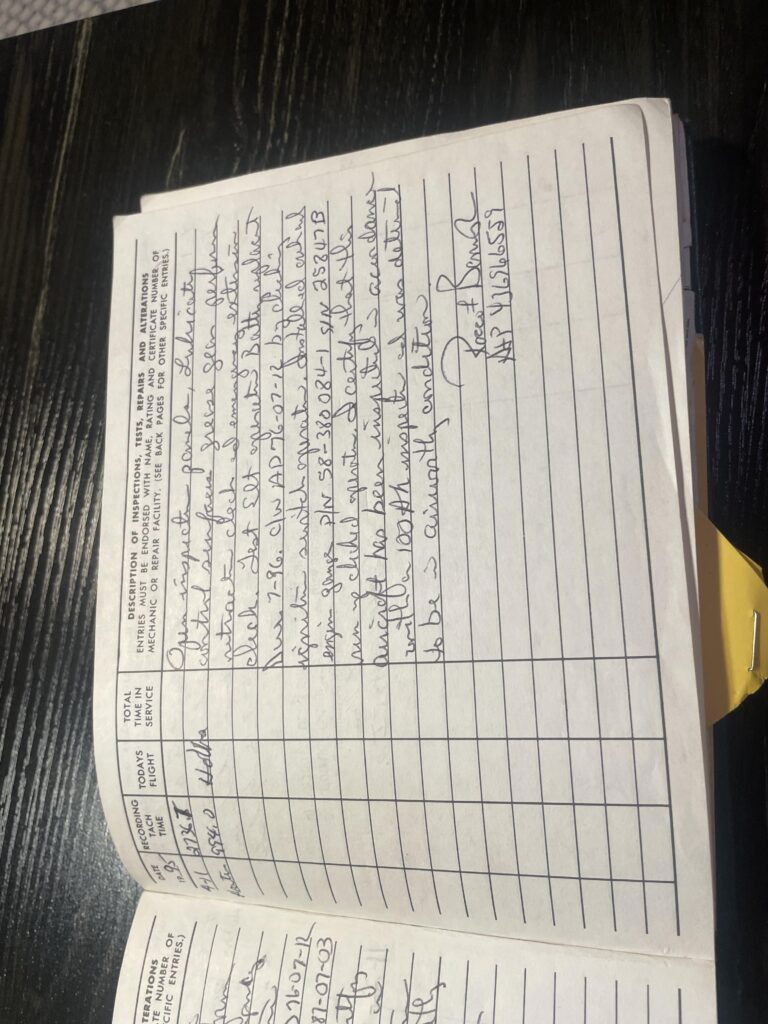 DATE
19 93
RECORDING
TACH
TIME
TODAYS
FLIGHT
TOTAL
TIME IN
SERVICE
DESCRIPTION OF INSPECTIONS, TESTS, REPAIRS AND ALTERATIONS
ENTRIES MUST BE ENDORSED WITH NAME, RATING AND CERTIFICATE NUMBER OF
MECHANIC OR REPAIR FACILITY. (SEE BACK PAGES FOR OTHER SPECIFIC ENTRIES.)
Open inspection panels, Lubricate
control surfaces grease gear perform
retraction check and emergency extension
check. Test Elt operation Battery replacement
Due 7-96. C/W AD 76-07-12 by checking
ignition switch operation. Installed
engine gauge P/N 58-380084-1 S/N 25847B
run up checked operation. I certify that this
aircraft has been inspected in accordance
with a 100 Hr inspection and was determined
to be in airworthy condition.
A&P
TERATIONS
TE NUMBER OF
CIFIC ENTRIES.)
D 76-07-12
87-07-03